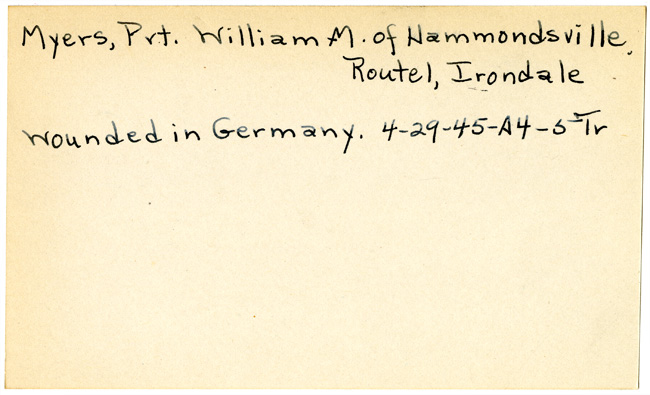 Myers, Pvt. William M. of Hammondsville,
Route 1, Irondale
Wounded in Germany. 4-29-45-A4-5 Tr